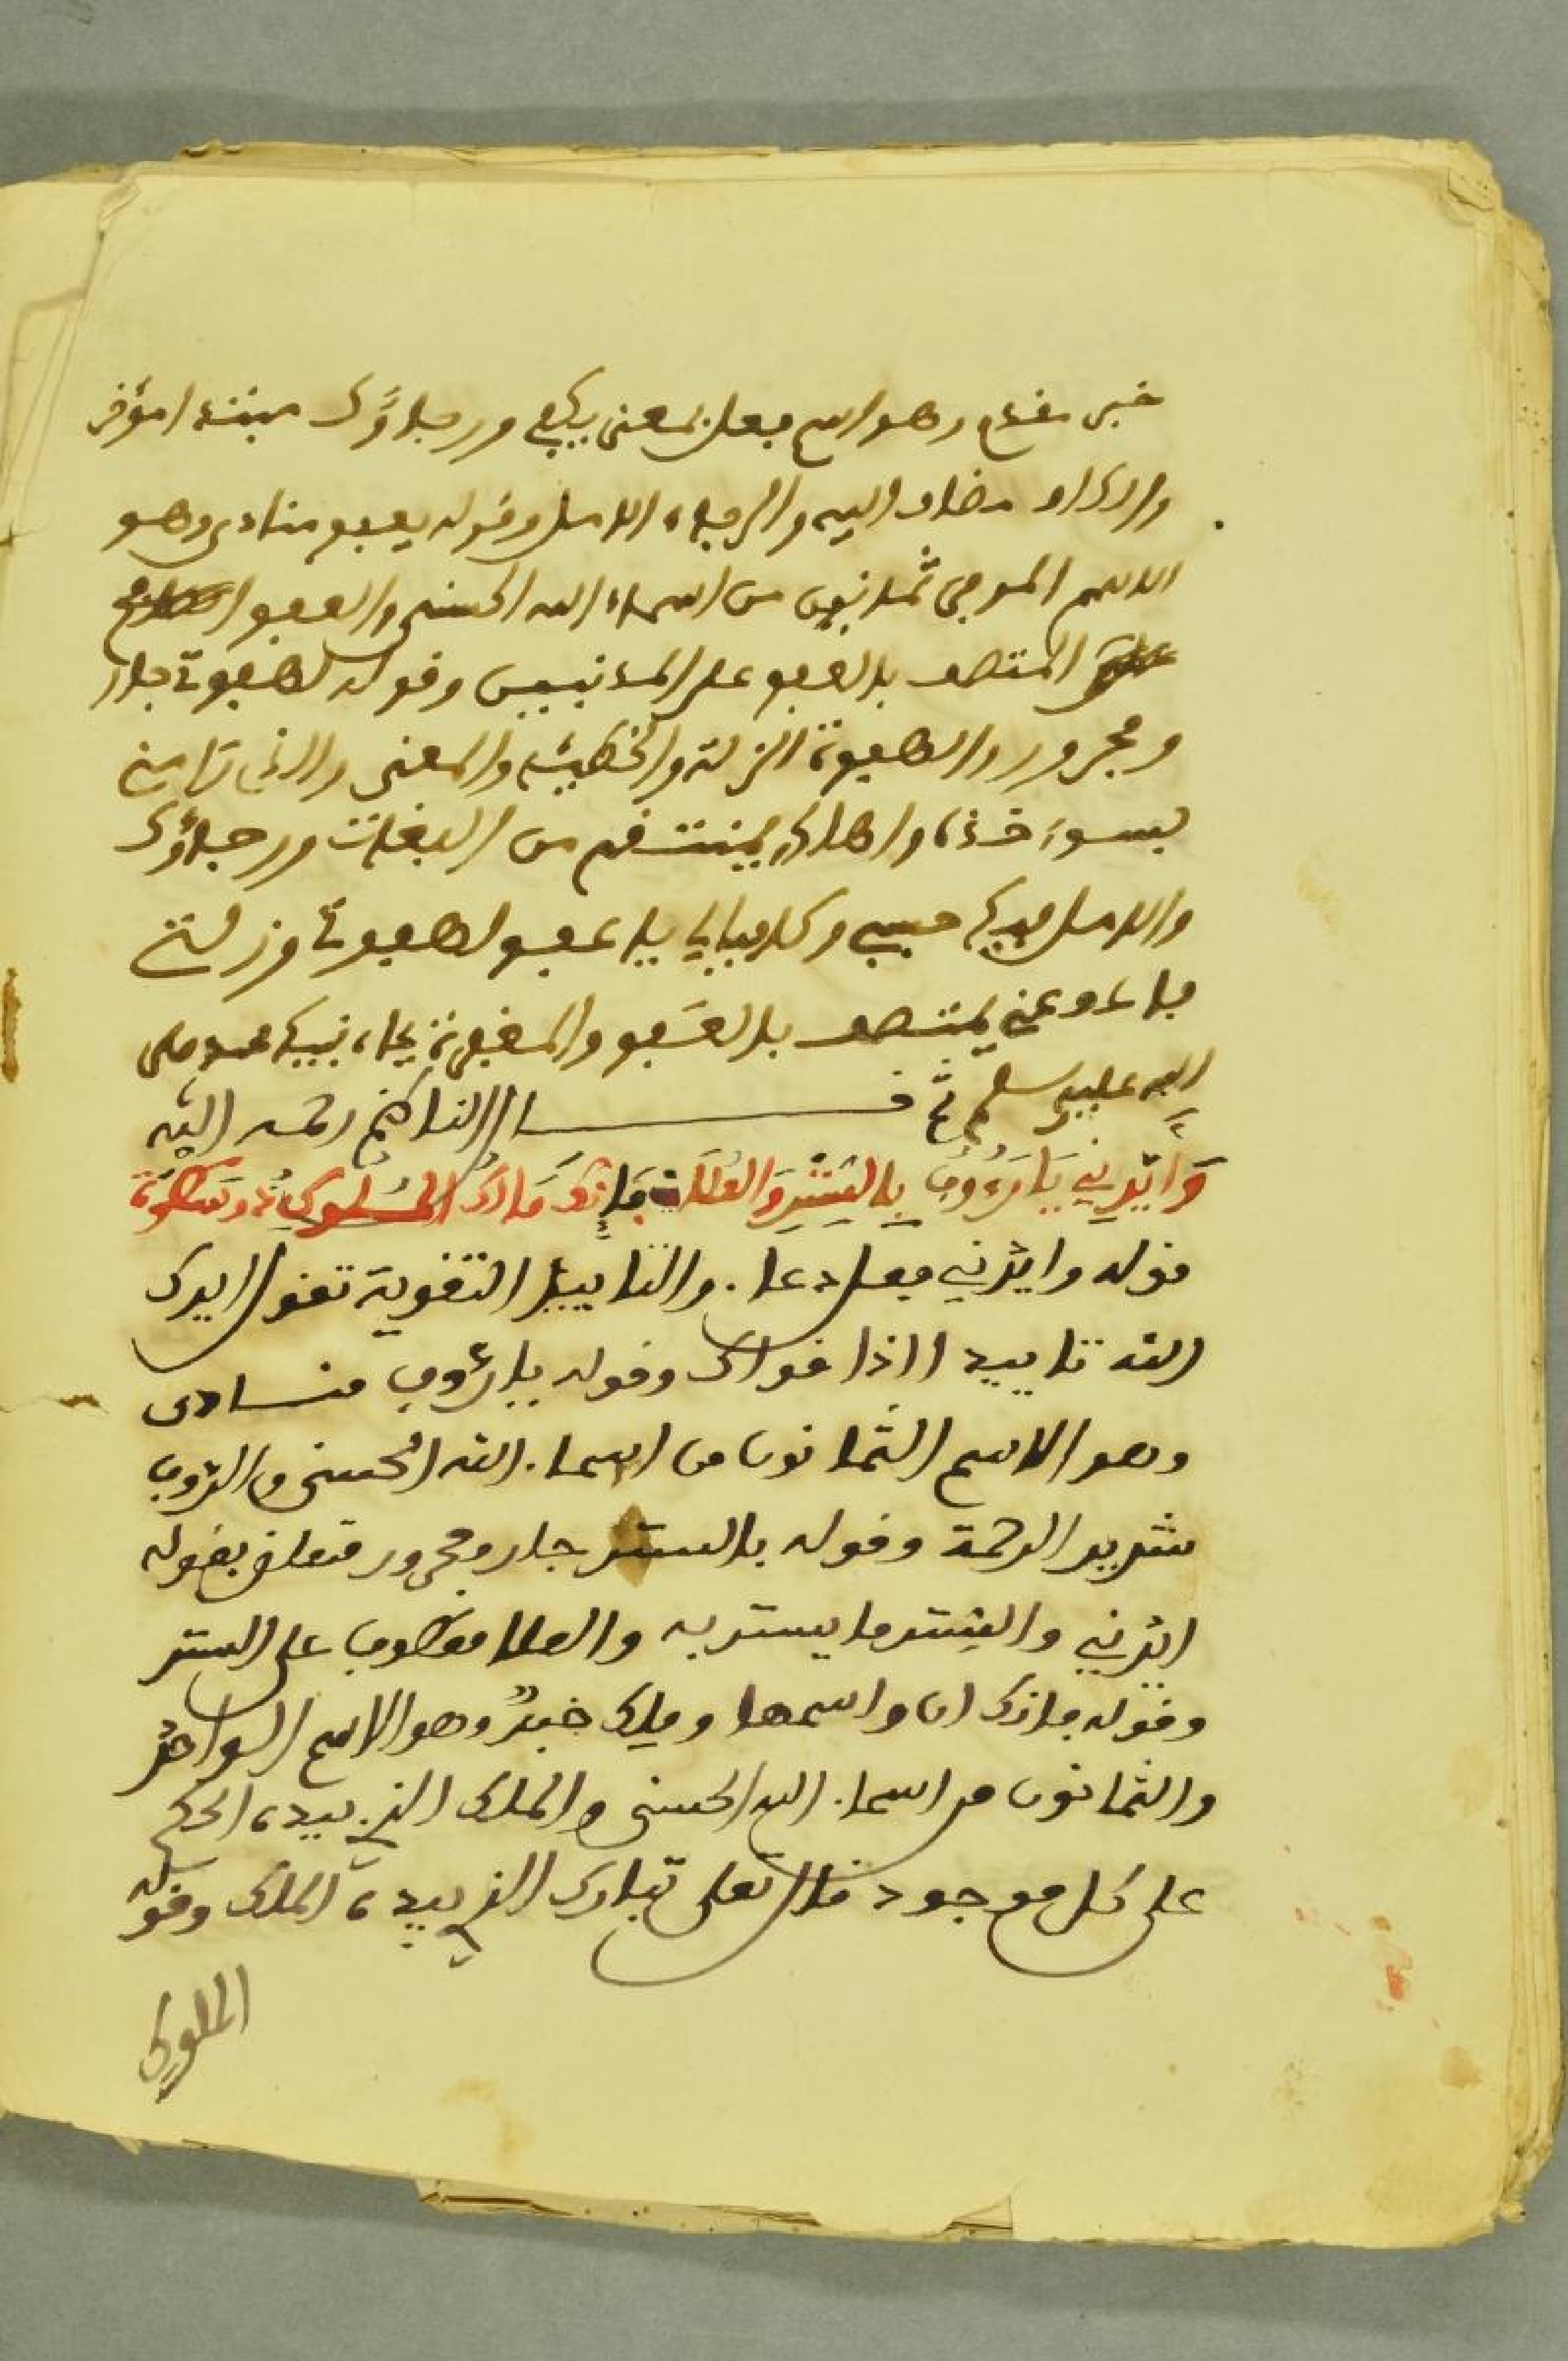 خبر مقدم وهو اسم فعل بمعنى يكفي ورجاؤك مبتدا مؤخر
والكاف مضاف اليه والرجاء الامل وقوله يعفو منادى وهو
الاسم الموفي ثمانون من اسماء الله الحسنى والعفو
المتصف بالعفو على المذنبين وقوله لهفوة جار
ومجرور والهفوة الزلة والخطيئة والمعنى
بسوء واهلك بمنتقم من ورجاؤك
والامل فيك حسبي وكافيا لي يا عفو لهفوتا وزلتي
فاعدوعني بمتصف بالعفو والمغفرة بجاه نبيك محمد صلى
الله عليه وسلم ثم قال الناظم رحمه الله
وَايّدني يَا رَءُوف بالسِّتْر وَالعُلَا فإنك مَالك المُلوك وسطوة
قوله وايدني فعل دعا. والتاييد التقوية تقول ايدك
الله تاييدا اذا قواك وقوله يا رءوف منادى
وهو الاسم الثمانون من اسما. الله الحسنى والرءوف
شديد الرحمة وقوله بالستر جار ومجرور متعلق بقوله
ايدني والستر ما يستر به والعلا معطوف على الستر
وقوله فانك ان واسمها وملك خبر وهو الاسم الواحد
والثمانون من اسما. الله الحسنى والملك الذي بيده الحكم
على كل موجود قال تعلى تبارك الذي بيده الملك وقوله
الملوك